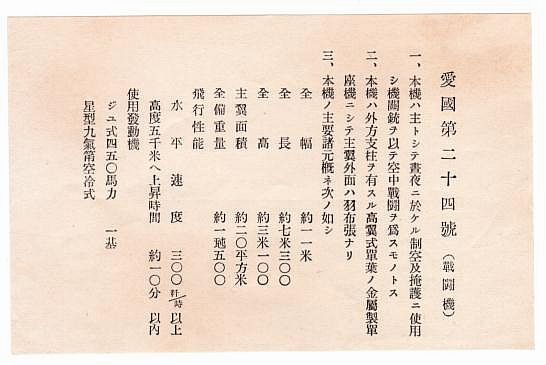 愛國第二十四號（戰鬪機）
一、本機ハ主トシテ晝夜ニ於ケル制空及掩護ニ使用
シ機關銃ヲ以テ空中戰鬪ヲ爲スモノトス
二、本機ハ外方支柱ヲ有スル高翼式單葉ノ金屬製單
座機ニシテ主翼外面ハ羽布張ナリ
三、本機ノ主要諸元概ネ次ノ如シ
全幅 約一一米
全長 約七米三〇〇
全高 約三米一〇〇
主翼面積 約二〇平方米
全備重量 約一瓲五〇〇
飛行性能
水平速度 三〇〇粁/時以上
高度五千米ヘ上昇時間 約一〇分以内
使用發動機
ジユ式四五〇馬力 一基
星型九氣筩空冷式